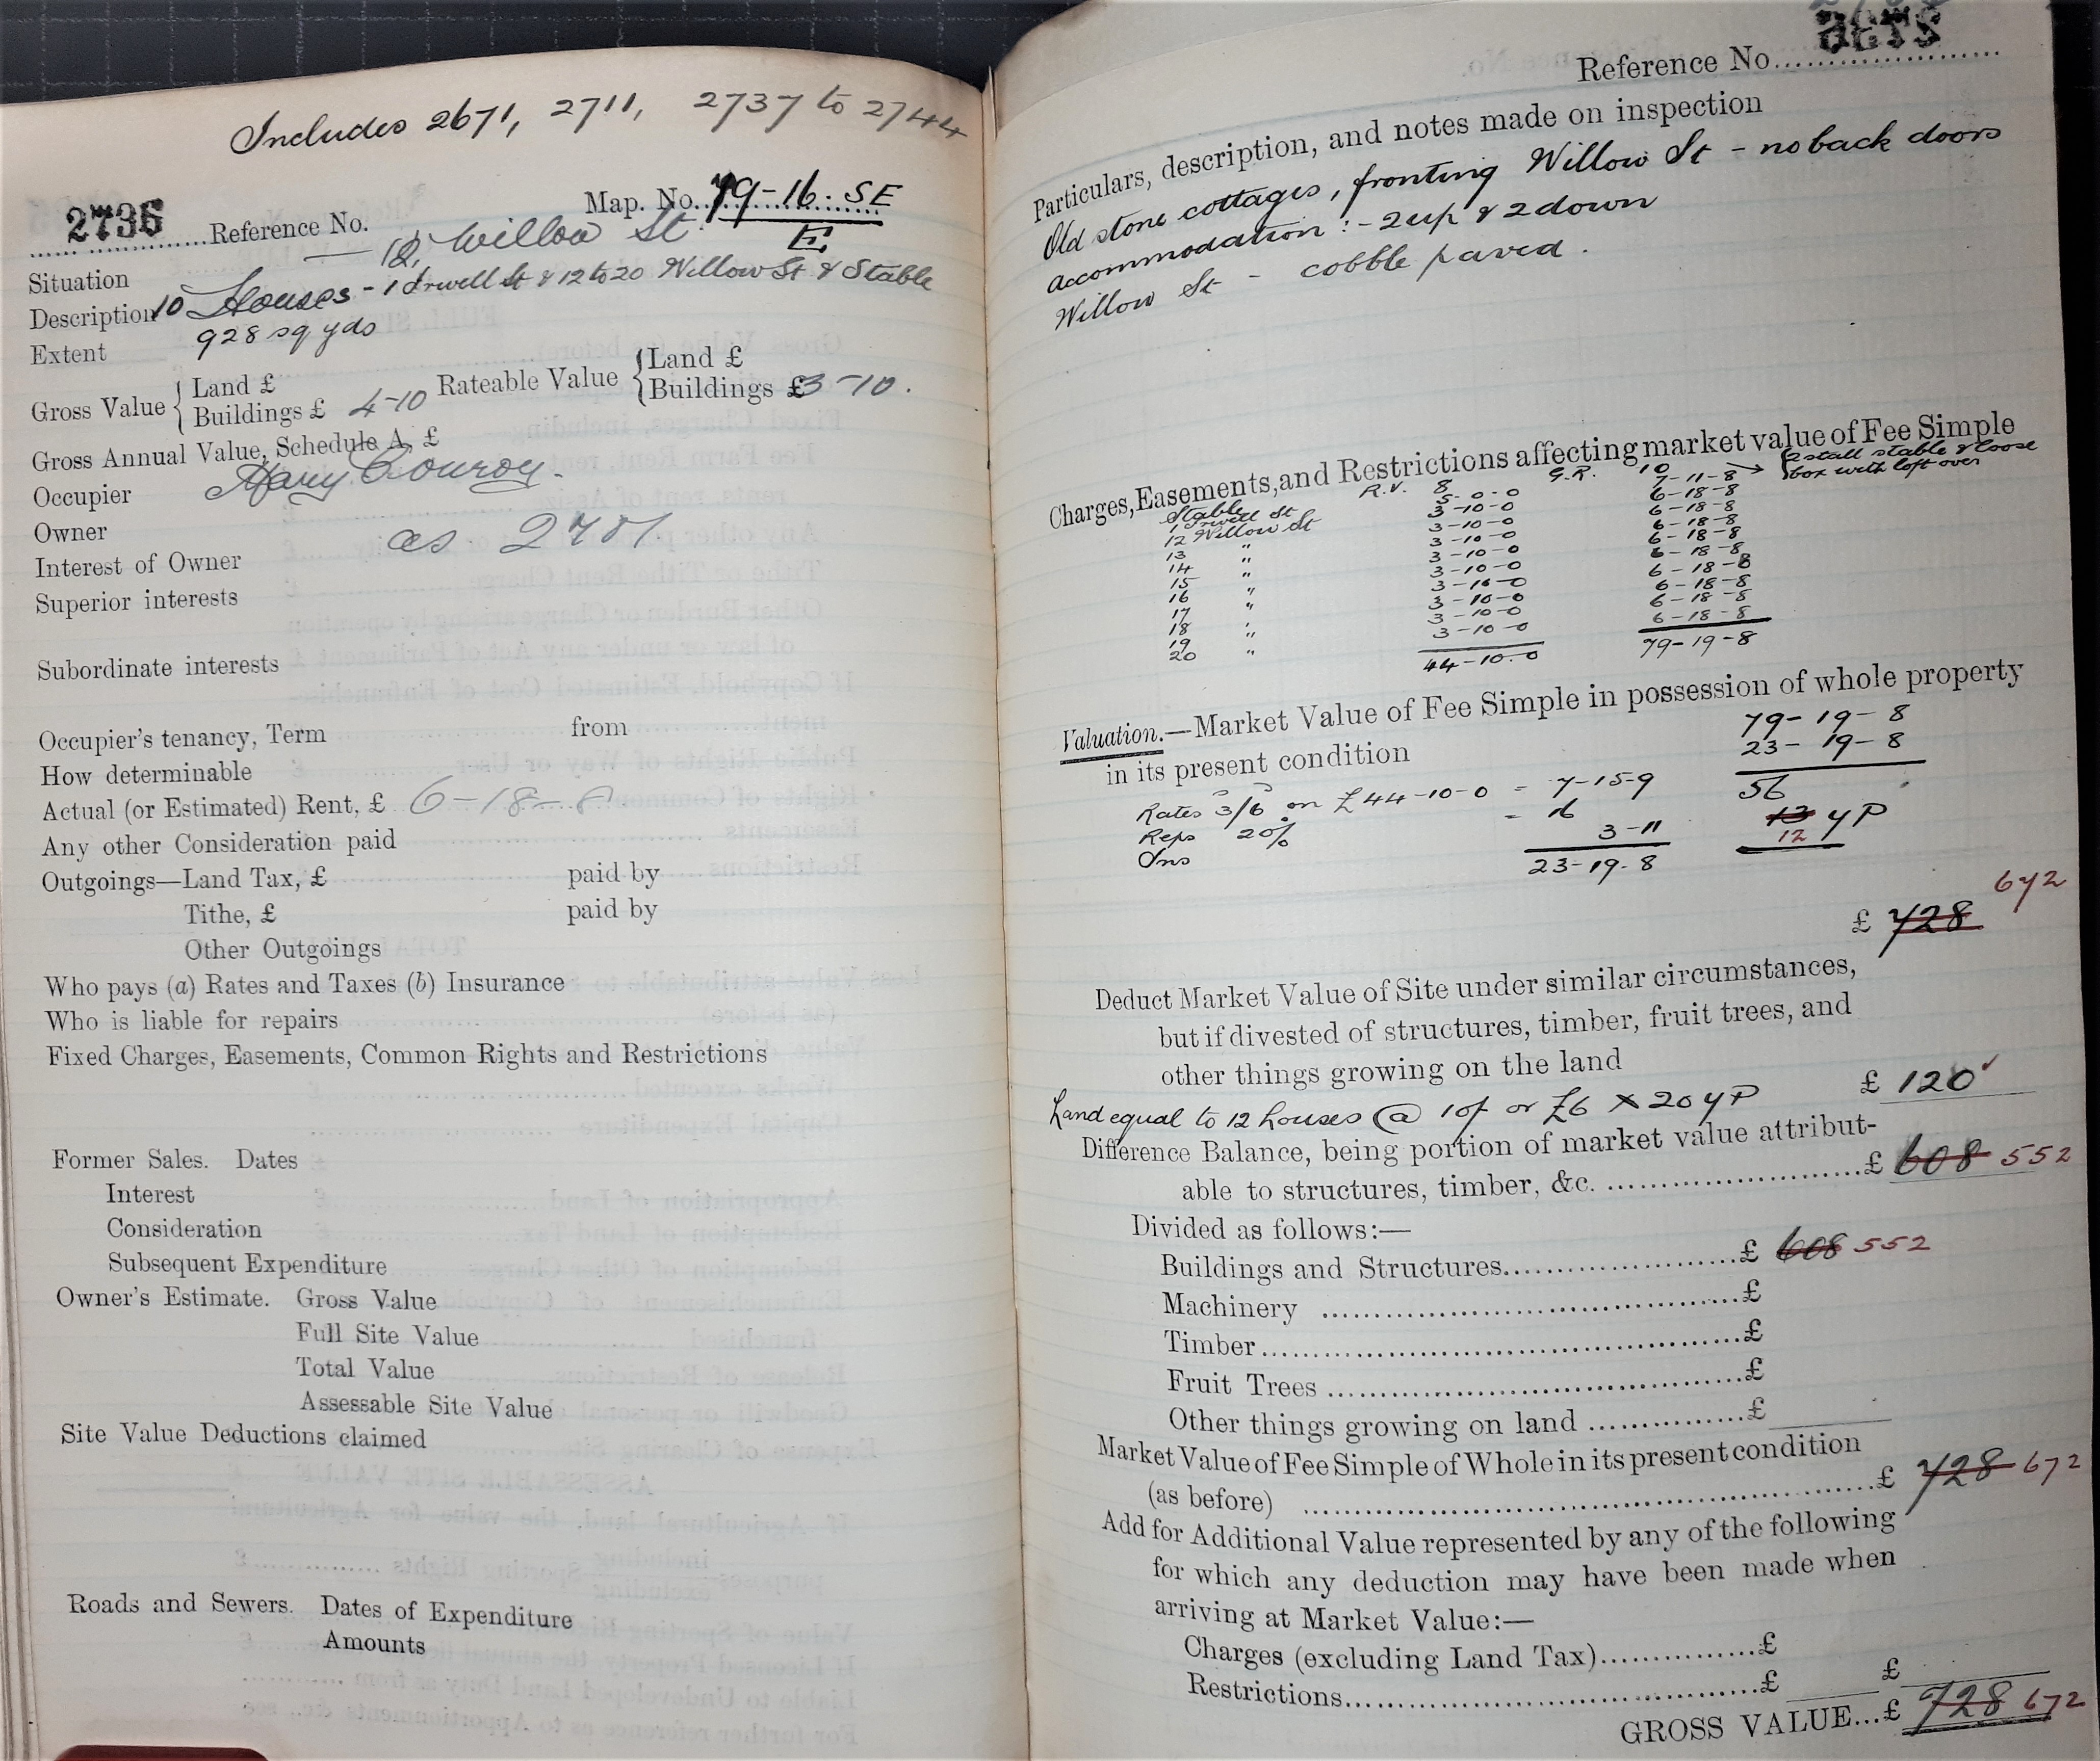 Includes 2671, 2711, 2737 to 2744
2736 Reference No. Map. No. 79-16. SE
E.
Situation 12, Willow St.
Description 10 Houses - 1 Irwell St & 12 to 20 Willow St & Stable
Extent 928 sq yds
Gross Value { Land £
Buildings £ 4-10 Rateable Value { Land £
Buildings £ 3-10.
Gross Annual Value, Schedule A, £
Occupier Mary Conroy
Owner
Interest of Owner as
Superior interests
Subordinate interests
Occupier's tenancy, Term from
How determinable
Actual (or Estimated) Rent, £ 6-18-8
Any other Consideration paid
Outgoings—Land Tax, £ paid by
Tithe, £ paid by
Other Outgoings
Who pays (a) Rates and Taxes (b) Insurance
Who is liable for repairs
Fixed Charges, Easements, Common Rights and Restrictions
Former Sales. Dates
Interest
Consideration
Subsequent Expenditure
Owner's Estimate. Gross Value
Full Site Value
Total Value
Assessable Site Value
Site Value Deductions claimed
Roads and Sewers. Dates of Expenditure
Amounts
Reference No. 2736
Particulars, description, and notes made on inspection
Old stone cottages, fronting Willow St - no back doors
Accommodation :- 2 up & 2 down
Willow St - cobble paved.
Charges, Easements, and Restrictions affecting market value of Fee Simple
R.V. G.R.
2 stall stable & loose
box with loft over
Stable 8 10
1 Irwell St 5-0-0 7-11-8
12 Willow St 3-10-0 6-18-8
13 " 3-10-0 6-18-8
14 " 3-10-0 6-18-8
15 " 3-10-0 6-18-8
16 " 3-10-0 6-18-8
17 " 3-10-0 6-18-8
18 " 3-10-0 6-18-8
19 " 3-10-0 6-18-8
20 " 3-10-0 6-18-8
44-10-0 79-19-8
Valuation.—Market Value of Fee Simple in possession of whole property
in its present condition
79-19-8
23-19-8
Rates 3/6 on £44-10-0 = 7-15-9 56
Reps 20% = 16 13 YP
12
Ins 3-11
23-19-8
£ 728 672
Deduct Market Value of Site under similar circumstances,
but if divested of structures, timber, fruit trees, and
other things growing on the land
Land equal to 12 houses @ 10/ or £6 x 20 YP £ 120
Difference Balance, being portion of market value attribut-
able to structures, timber, &c. £ 608 552
Divided as follows:—
Buildings and Structures £ 608 552
Machinery £
Timber £
Fruit Trees £
Other things growing on land £
Market Value of Fee Simple of Whole in its present condition
(as before) £ 728 672
Add for Additional Value represented by any of the following
for which any deduction may have been made when
arriving at Market Value:—
Charges (excluding Land Tax) £
Restrictions £ £
GROSS VALUE...£ 728 672